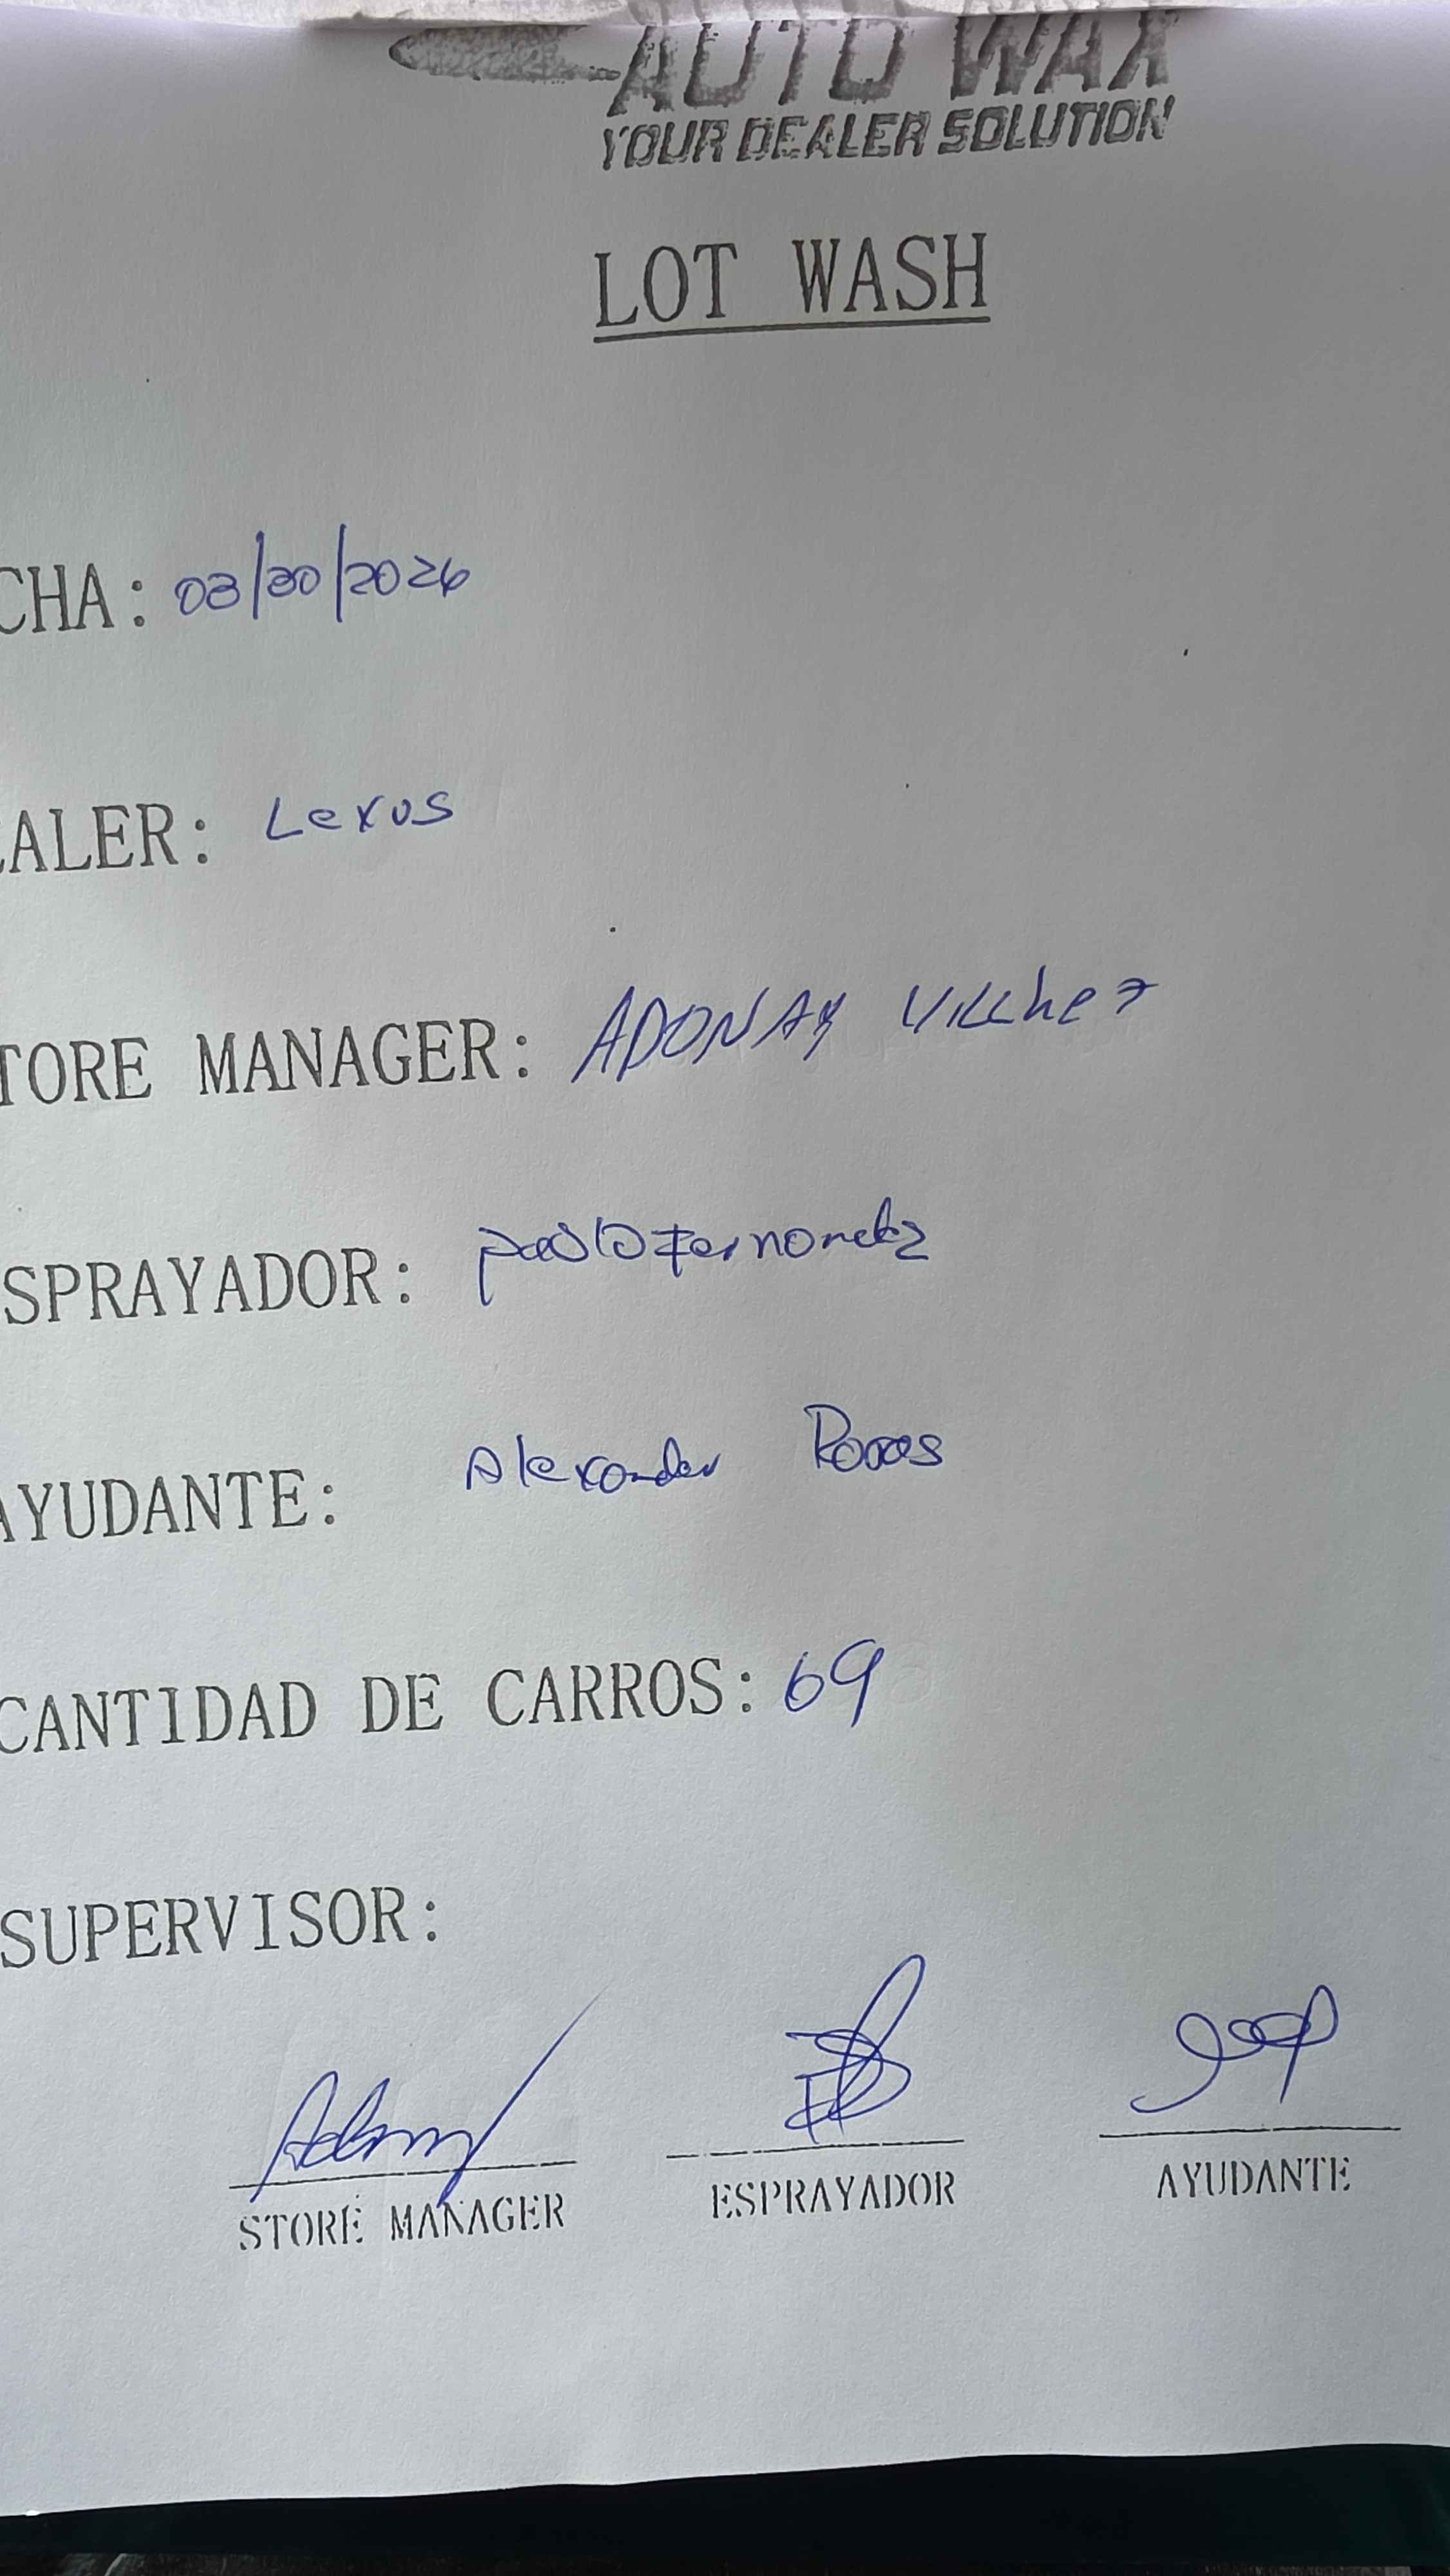 AUTO WAX
YOUR DEALER SOLUTION
LOT WASH
CHA: 03/30/2026
EALER: Lexus
TORE MANAGER: ADONAY VILLhez
SPRAYADOR: pablo Fernandez
AYUDANTE: Alexander
CANTIDAD DE CARROS: 69
SUPERVISOR:
STORE MANAGER ESPRAYADOR AYUDANTE